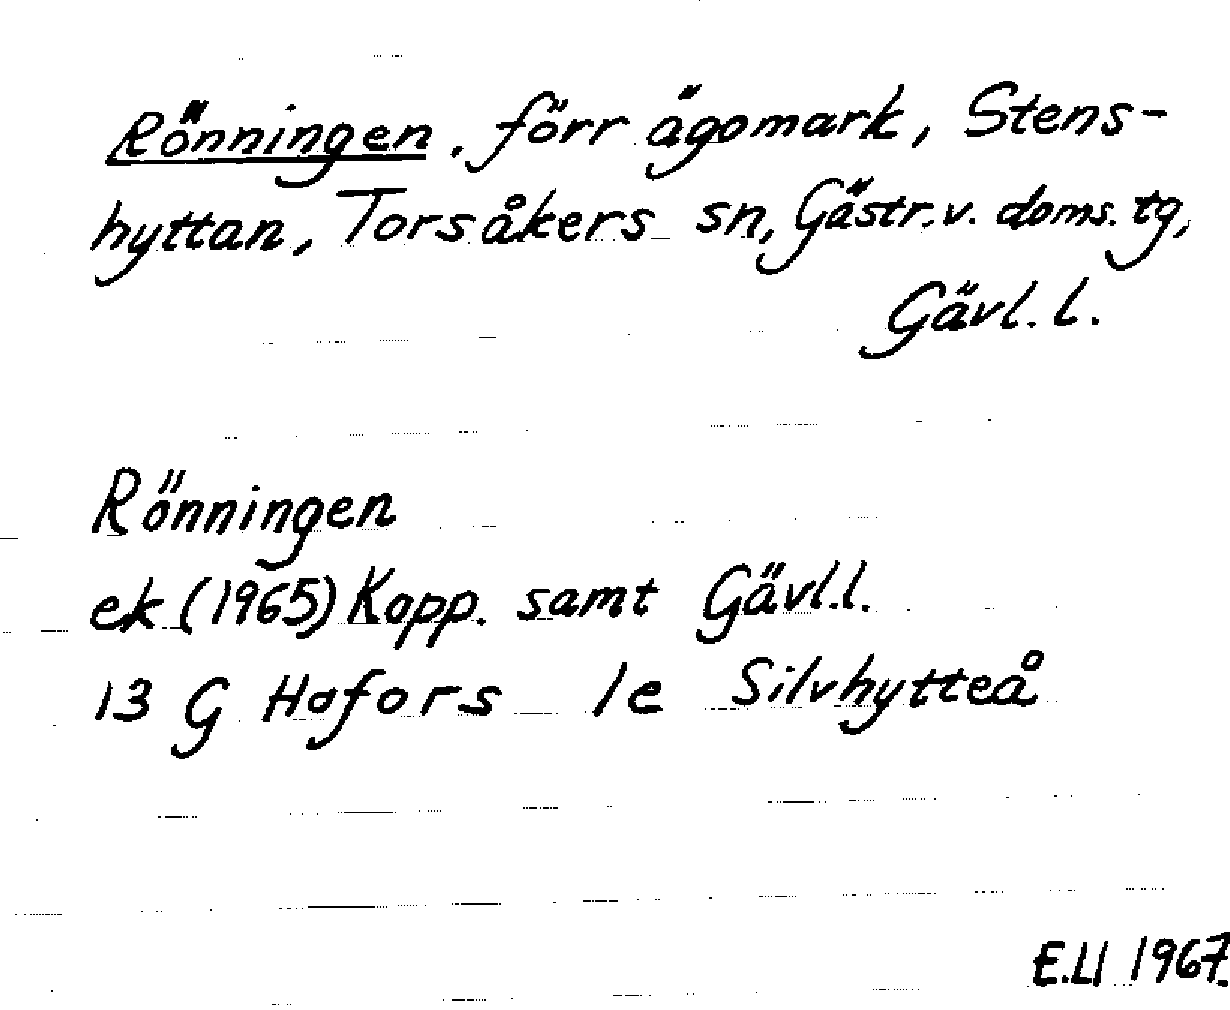 Rönningen, förr ägomark, Stens-
hyttan, Torsåkers sn, Gästr.v. doms. tg,
Gävl. l.
Rönningen
ek (1965) Kopp. samt Gävl.l.
13 G Hofors 1e Silvhytteå
E.Ll 1967.